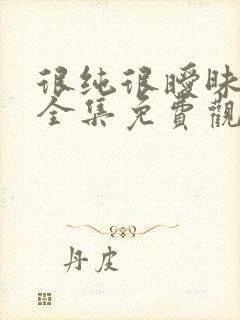 很纯很暧昧
全集免費觀
丹皮